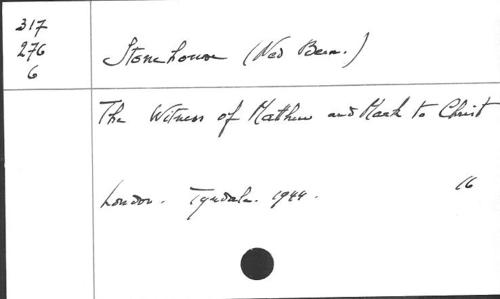 317
276
6
Stonehouse (Ned Bern.)
The Witness of Matthew and Mark to Christ
London. Tyndale. 1944. 16